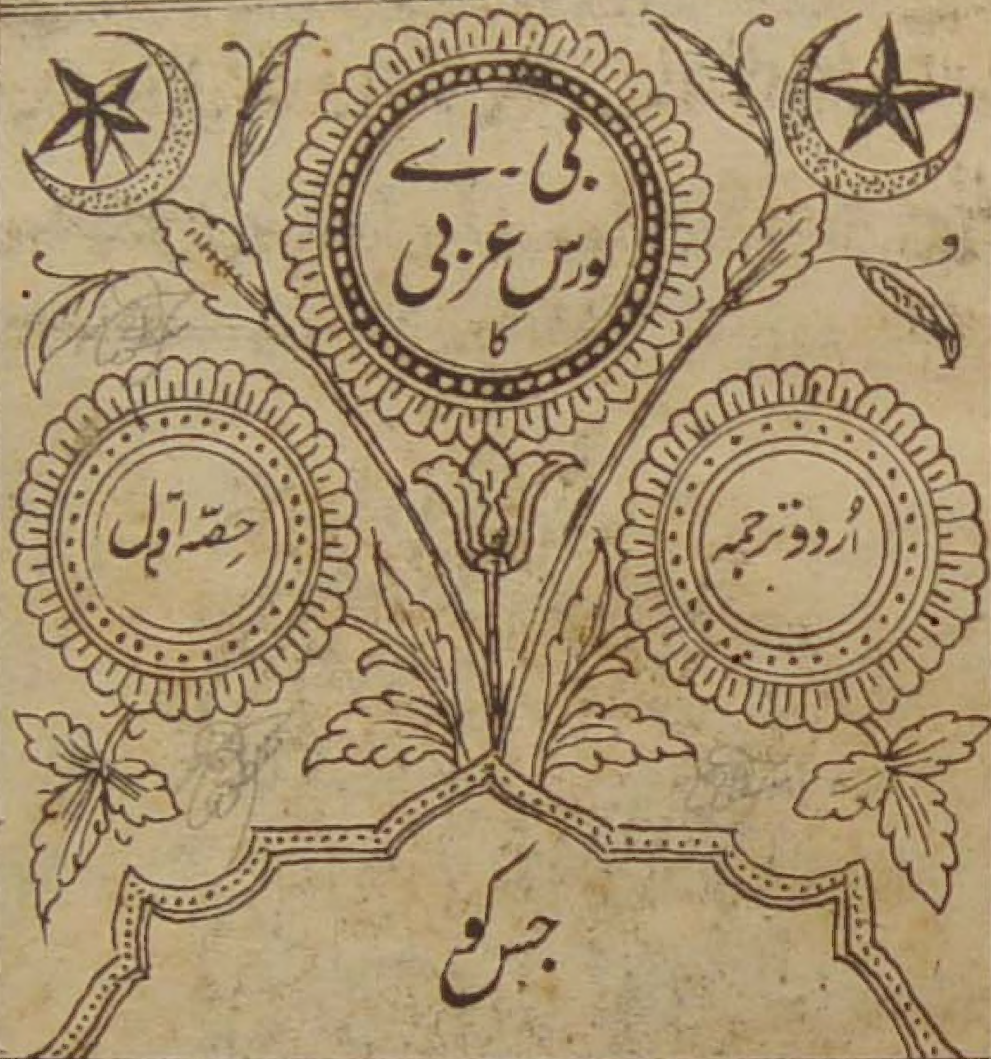 بی۔ اے
کورس عربی
کا
اُردو ترجمہ
حصّہ اوّل
جس کو